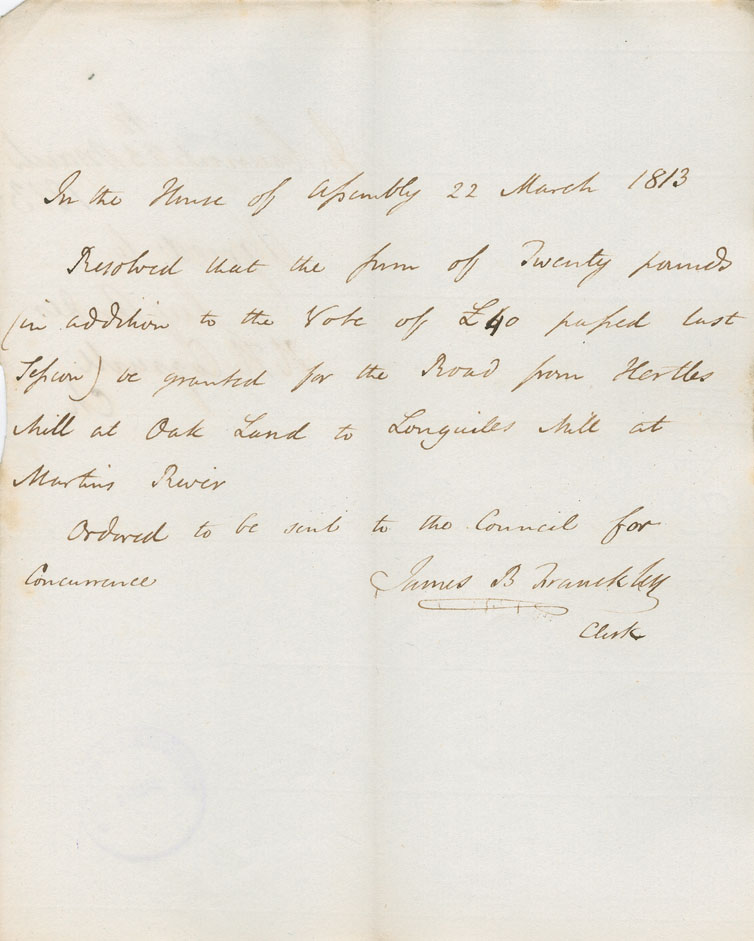 In the House of Assembly 22 March 1813
Resolved that the sum of Twenty pounds
(in addition to the Vote of £40 passed last
Session) be granted for the Road from Hertles
Mill at Oak Land to Longuiles Mill at
Martins River
Ordered to be sent to the Council for
Concurrence James B Franckley
Clerk